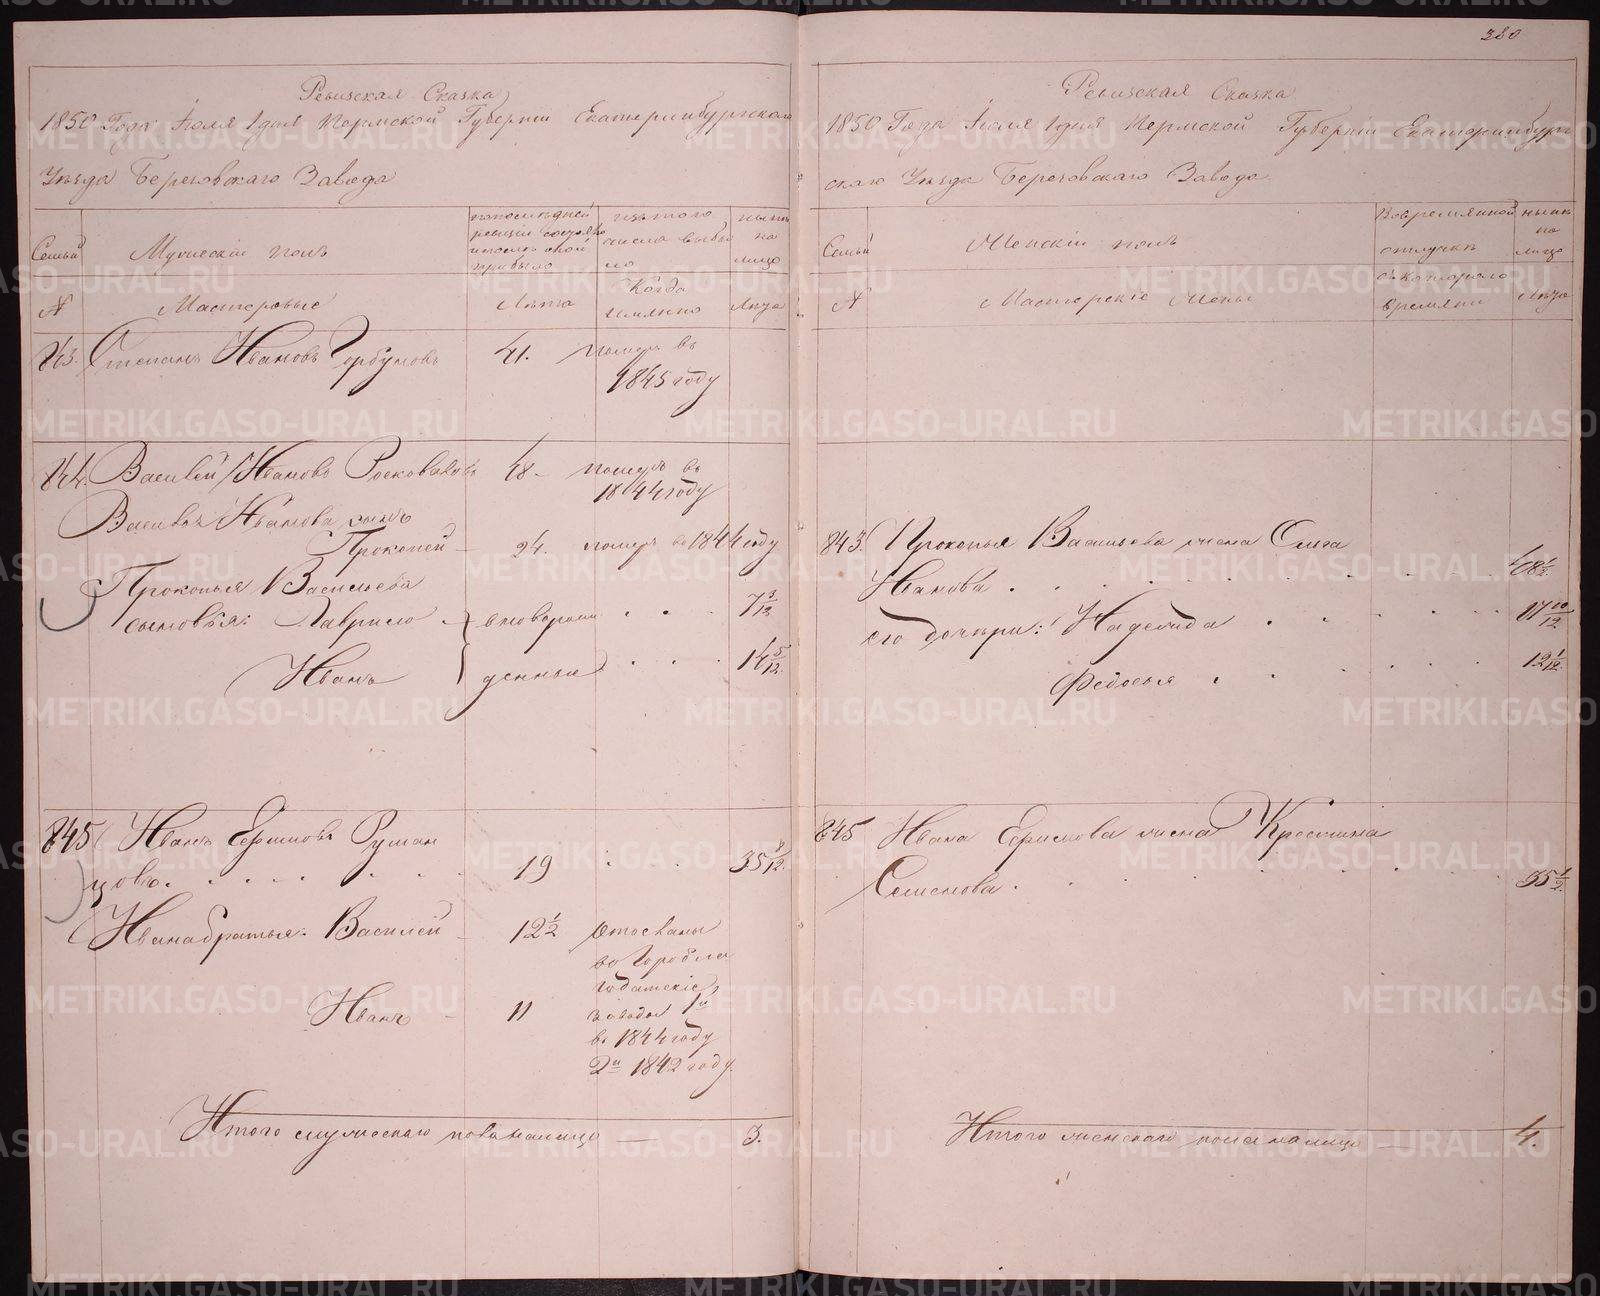 Ревизская Сказка
1850 Года Іюля 1 дня Пермской Губерніи Екатеринбургскаго
Уѣзда Березовскаго Завода
Семьи
Мужескій полъ
по последней
ревизіи состояло
и после оной
прибыло
изъ того
числа выбы
ло
нынѣ
на
лицо
№
Мастеровые
Лѣта
Когда
имянно
Лѣта
843. Степанъ Ивановъ Горбуновъ 41. померъ въ
1845 году
844. Василей Ивановъ 48 - померъ въ
1844 году
Василья Иванова сынъ
Прокопей - 24. померъ въ 1844 году
Прокопья Васильева
сыновья: Гаврило - новорож 7
Иванъ денные 14 5/12.
845 Иванъ Ефимовъ Руман
цовъ. 19 35
Ивана братья: Василей - 12 1/2 Отосланы
во Горобла
годатскіе
Иванъ - 11 заводы 1й
въ 1844 году
2й 1842 году.
Итого мужескаго пола на лицо — 3.
380
Ревизская Сказка
1850 Года Іюля 1 дня Пермской Губерніи Екатеринбург
скаго Уѣзда Березовскаго Завода.
Семьи
Женскій полъ
Во временной
отлучкѣ
нынѣ
на
лицо
№
Мастерскіе Жены
съ котораго
времяни
Лѣта
843. Прокопья Васильева жена Ольга
Иванова . 48 1/2.
его дочери: Надежда 17 10/12
Федосья 12 1/12.
845 Ивана Ефимова жена Крестина
Семенова . 35 1/2.
Итого женскаго пола на лицо 4.
METRIKI.GASO-URAL.RU